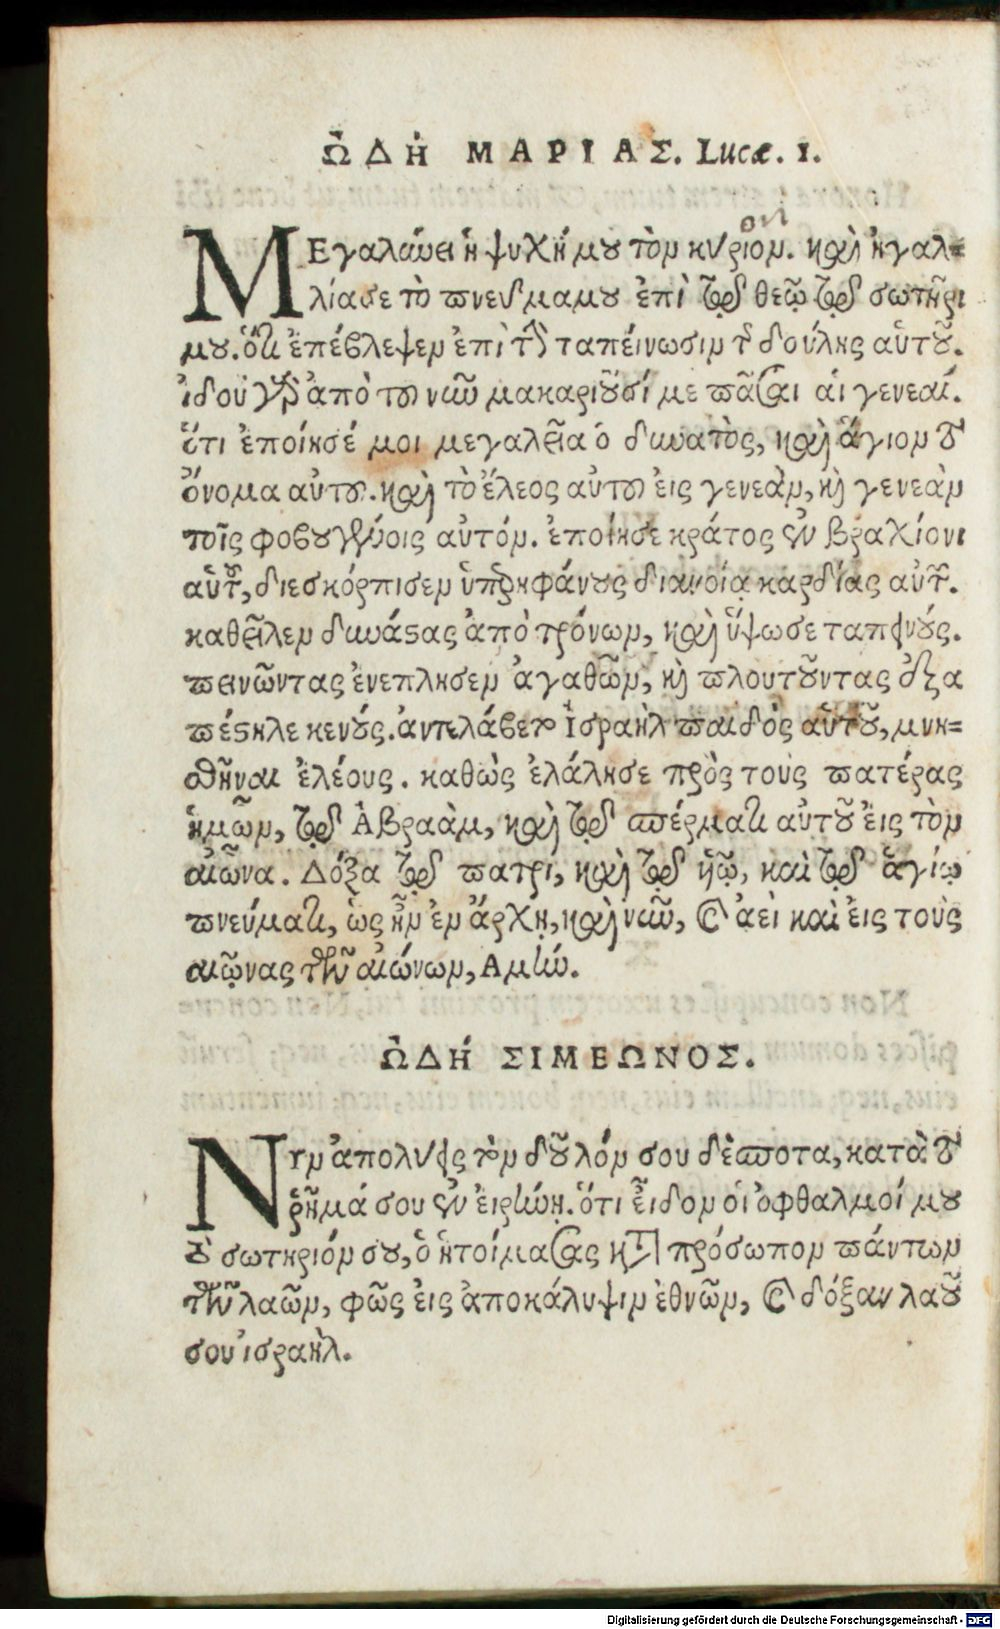 ΩΔΗ ΜΑΡΙΑΣ. Lucæ. 1.
ΜΕγαλύνει ἡ ψυχή μου τὸν κύριον. καὶ ἠγαλ=
λίασε τὸ πνεῦμα μου ἐπὶ τῷ θεῷ τῷ σωτῆρι
μου. ὅτι ἐπέβλεψεν ἐπὶ τὴν ταπείνωσιν τῆς δούλης αὑτοῦ.
ἰδοὺ γὰρ ἀπὸ τοῦ νῦν μακαριοῦσί με πᾶσαι αἱ γενεαί.
ὅτι ἐποίησέ μοι μεγαλεῖα ὁ δυνατὸς, καὶ ἅγιον τὸ
ὄνομα αὐτοῦ. καὶ τὸ ἔλεος αὐτοῦ εἰς γενεὰν, καὶ γενεὰν
τοῖς φοβουμένοις αὐτόν. ἐποίησε κράτος ἐν βραχίονι
αὑτοῦ, διεσκόρπισεν ὑπερηφάνους διανοίᾳ καρδίας αὐτῶν.
καθεῖλεν δυνάστας ἀπὸ τρόνων, καὶ ὕψωσε ταπεινούς.
πεινῶντας ἐνεπλησεν ἀγαθῶν, καὶ πλουτοῦντας ἐξα
πέστηλε κενούς. ἀντελάβετο Ἰσραὴλ παιδὸς αὑτοῦ, μνη=
σθῆναι ἐλέους. καθὼς ἐλάλησε πρὸς τοὺς πατέρας
ἡμῶν, τῷ Ἀβραὰμ, καὶ τῷ σπέρματι αὐτοῦ εἰς τὸν
αἰῶνα. Δόξα τῷ πατρί, καὶ τῷ ὑῷ, καὶ τῷ ἁγίῳ
πνεύματι, ὡς ἦν ἐν ἄρχῃ, καὶ νῦν, καὶ ἀεὶ καὶ εἰς τοὺς
αἰῶνας τῶν αἰώνων, Αμήν.
ΩΔΗ ΣΙΜΕΩΝΟΣ.
Νῦν ἀπολύεις τὸν δοῦλόν σου δέσποτα, κατὰ τὸ
ῥῆμά σου ἐν εἰρήνῃ. ὅτι εἶδον οἱ ὀφθαλμοί μου
τὸ σωτηριόν σου, ὃ ἡτοίμασας κατὰ πρόσωπον πάντων
τῶν λαῶν, φῶς εἰς ἀποκάλυψιν ἐθνῶν, καὶ δόξαν λαοῦ
σου ἰσραήλ.
Digitalisierung gefördert durch die Deutsche Forschungsgemeinschaft - DFG